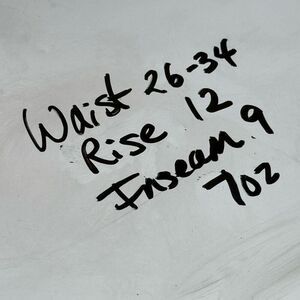 Waist 26-34
Rise 12
Inseam 9
7oz